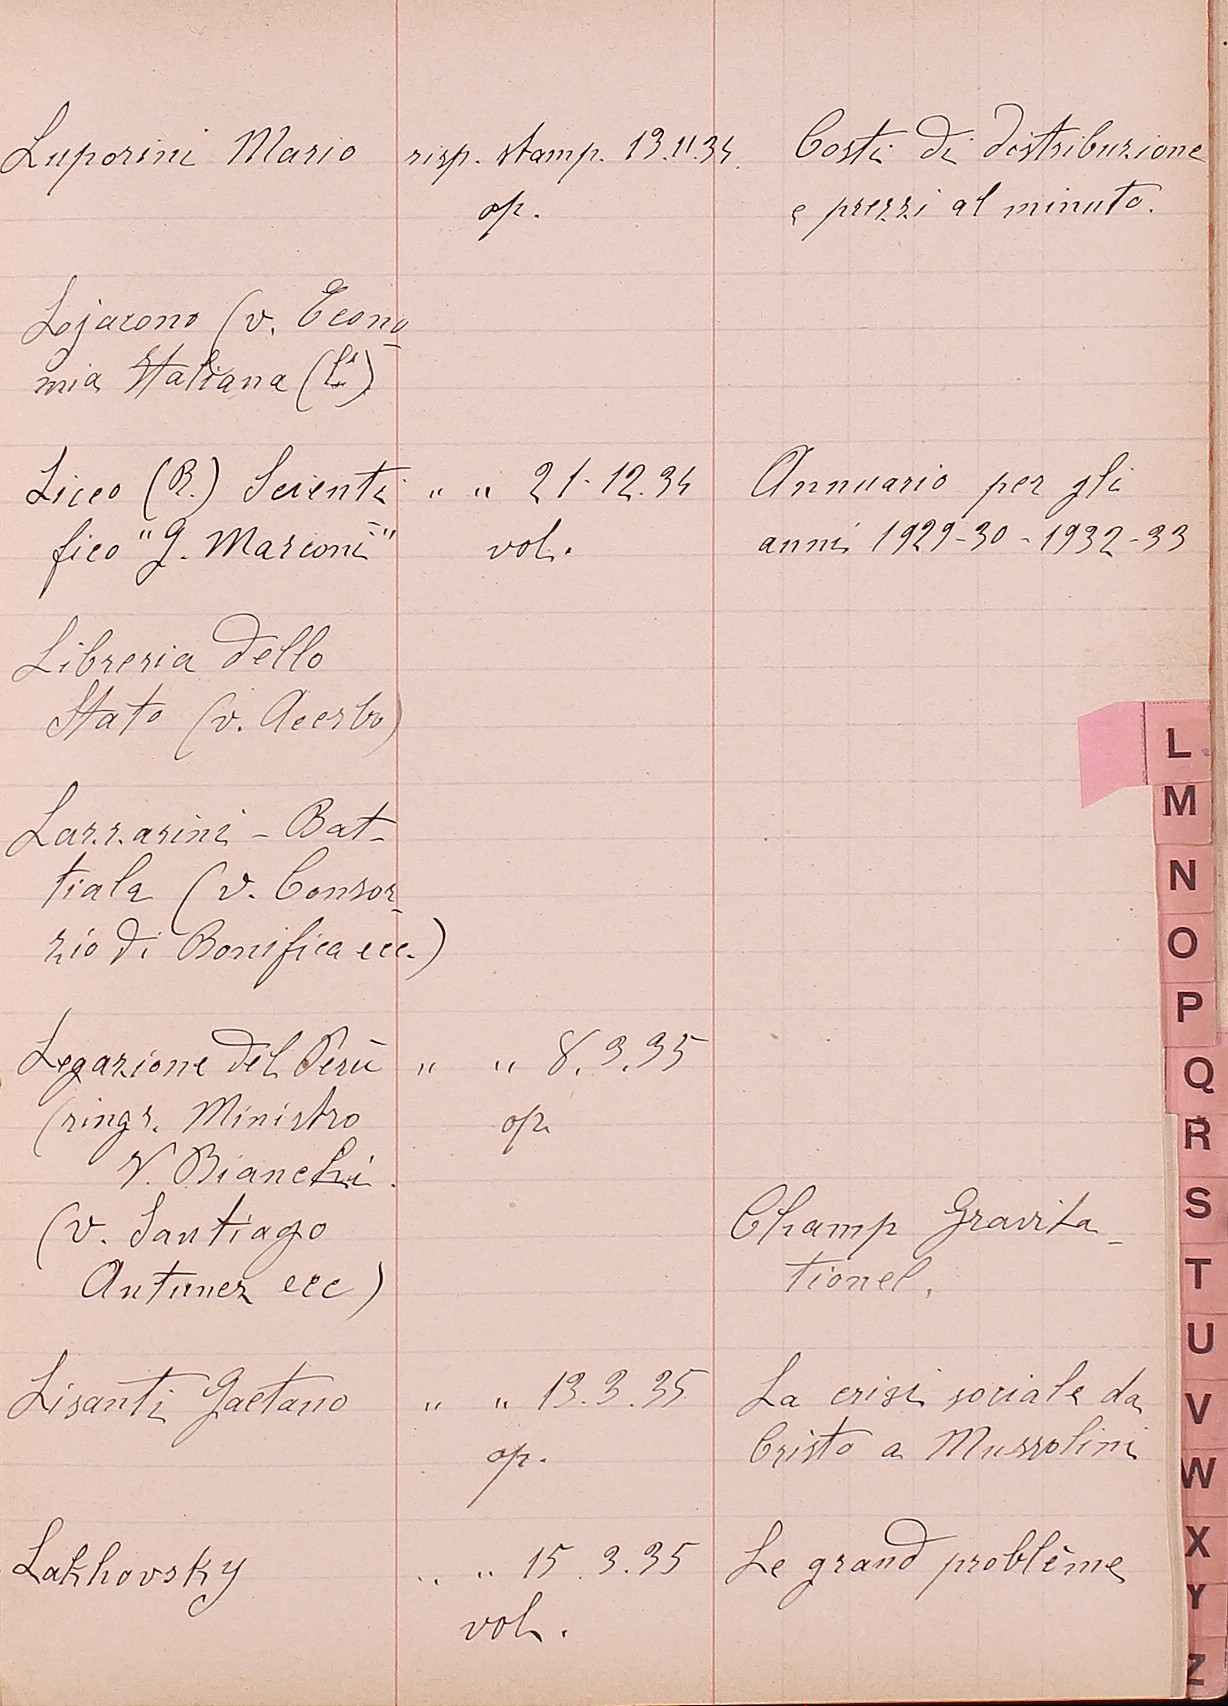 Luporini Mario risp. stamp. 13.11.34. Costi di distribuzione
op. e prezzi al minuto.
Lojacono (v. Econo-
mia Italiana (L')
Liceo (R.) Scienti- " " 21-12.34 Annuario per gli
fico "G. Marconi" vol. anni 1929-30 - 1932-33
Libreria dello
Stato (v. Acerbo)
Lazzarini - Bat-
tiala (v. Consor-
zio di Bonifica ecc.)
Legazione del Perù " " 8.3.35
(ringr. Ministro op.
V. Bianchi.
(v. Santiago Champ Gravita-
Antunez ecc) tionel.
Lisanti Gaetano " " 13.3.35 La crisi sociale da
op. Cristo a Mussolini
Lakhovsky " " 15.3.35 Le grand problème
vol.
L
M
N
O
P
Q
R
S
T
U
V
W
X
Y
Z